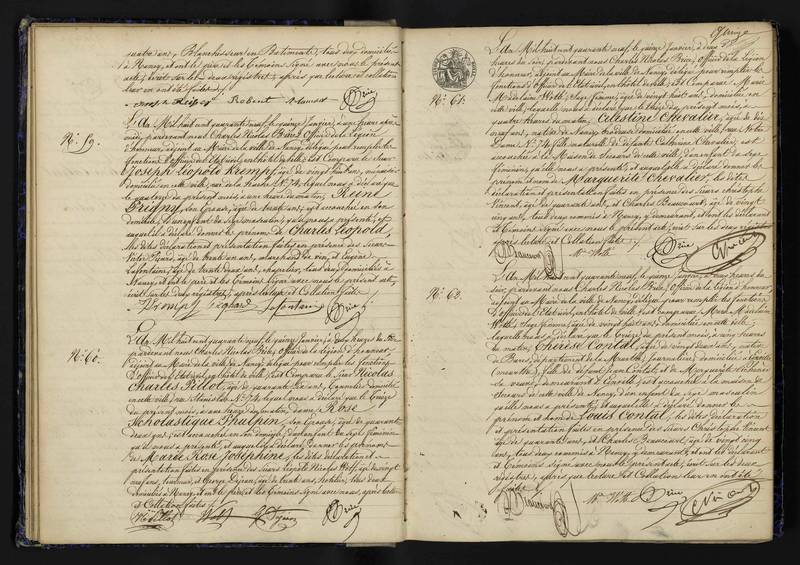 quatre ans, Blanchisseur en Batiments, tous deux domiciliés
à Nancy, et ont le père et les témoins signé avec nous le présent
acte, écrit sur les deux registres, après que lecture et collation
leur en ont été faites
Joseph Robert
N.º 59.
L'An Mil huit cent quarante neuf, le quinze janvier, à une heure après
midi, pardevant nous Charles Nicolas Brice, Officier de la Légion
d'honneur, adjoint au Maire de la Ville de Nancy, délégué pour remplir les
fonctions d'officier de l'Etat civil, en l'hôtel de ville, Est Comparu le Sieur
Joseph Léopold Krempf, âgé de vingt huit ans,
domicilié en cette ville, rue de la hache N.º 74, lequel nous a déclaré que
le quatorze du présent mois, à une heure du matin, Reine
Prugny, son épouse, âgée de trente ans, est accouchée en son
domicile, d'un enfant du sexe masculin, qu'il nous a présenté, et
auquel il a déclaré donner les prénoms de Charles Léopold,
les dites déclaration et présentation faites en présence des Sieurs
Victor Picard, âgé de trente six ans, marchand de vin, et Eugène
Lafontaine, âgé de trente deux ans, chapelier, tous deux domiciliés à
Nancy, et ont le père et les témoins signé avec nous le présent acte,
écrit sur les deux registres, après lecture et Collation faite
Krempf Picard Lafontaine Brice
N.º 60.
L'An Mil huit cent quarante neuf, le quinze janvier, à
pardevant nous Charles Nicolas Brice, Officier de la Légion d'honneur,
adjoint au Maire de la Ville de Nancy, délégué pour remplir les fonctions
d'officier de l'Etat civil, en l'hôtel de ville, Est Comparu le Sieur Nicolas
Charles Pillot, âgé de quarante six ans, domicilié
en cette ville, rue Stanislas N.º 74, lequel nous a déclaré que le treize
du présent mois, à onze heures du matin, Dame Rose
Scholastique Thulpin, son épouse, âgée de quarante
deux ans, est accouchée en son domicile, d'un enfant du sexe féminin,
qu'il nous a présenté, et auquel il a déclaré donner les prénoms
de Marie Rose Joséphine, les dites déclaration et
présentation faites en présence des Sieurs Léopold Nicolas Wolff, âgé de vingt
neuf ans, et George, âgé de trente ans, tous deux
domiciliés à Nancy, et ont le père et les témoins signé avec nous, après lecture
et Collation faites
Pillot Wolff Brice
Quinze
N.º 61.
L'An Mil huit cent quarante neuf, le quinze janvier, à deux
heures du soir, pardevant nous Charles Nicolas Brice, Officier de la Légion
d'honneur, adjoint au Maire de la Ville de Nancy, délégué pour remplir les
fonctions d'officier de l'Etat civil, en l'hôtel de ville, Est Comparue Marie
Madelaine Woth, Sage femme, âgée de vingt huit ans, domiciliée en
cette ville, laquelle nous a déclaré que le treize du présent mois, à
quatre heures du matin, Célestine Chevalier, âgée de dix
neuf ans, native de Nancy, domiciliée en cette ville, rue Notre
Dame N.º 74, fille naturelle de défunte Catherine Chevalier, est
accouchée à la Maison de Secours de cette ville, d'un enfant du sexe
féminin, qu'elle nous a présenté, et auquel elle a déclaré donner les
prénom et nom de Marguerite Chevalier, les dites
déclaration et présentation faites en présence des Sieurs Christophe
Vincent, âgé de quarante ans, et Charles Beaucourt, âgé de vingt
cinq ans, tous deux commis à Nancy, y demeurant, et ont les déclarant
et témoins signé avec nous le présent acte, écrit sur les deux registres
après lecture et Collation faites
Beaucourt M. Woth Brice Vincent
N.º 62.
L'An Mil huit cent quarante neuf, le quinze janvier, à deux heures du
soir, pardevant nous Charles Nicolas Brice, Officier de la Légion d'honneur,
adjoint au Maire de la Ville de Nancy, délégué pour remplir les fonctions
d'officier de l'Etat civil, en l'hôtel de ville, Est Comparue Marie Madelaine
Woth, Sage femme, âgée de vingt huit ans, domiciliée en cette ville,
laquelle nous a déclaré que le treize du présent mois, à cinq heures
du matin, Thérèse Contal, âgée de vingt deux ans, native
de Bures, département de la Meurthe, journalière domiciliée à
(Meurthe), fille de défunt Jean Contal, et de Marguerite
sa veuve, demeurant à, est accouchée à la maison de
Secours de cette ville de Nancy, d'un enfant du sexe masculin
qu'elle nous a présenté, et auquel elle a déclaré donner les
prénom et nom de Louis Contal, les dites déclaration
et présentation faites en présence des Sieurs Christophe Vincent
âgé de quarante ans, et Charles Beaucourt, âgé de vingt cinq
ans, tous deux commis à Nancy, y demeurant, et ont les déclarant
et témoins signé avec nous le présent acte, écrit sur les deux
registres, après que lecture et Collation leur en ont été
faites
Beaucourt M. Woth Brice Vincent